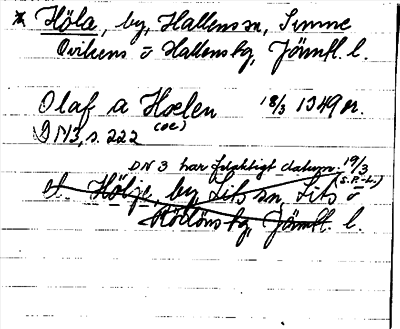 * Höla, by, Hallens sn, Sunne
Ovikens o Hallens tg, Jämtl. l.
Olaf a Hoelen 18/3 1349 or.
(oe)
DN3, s. 222
DN 3 har felaktigt datum 19/3
(S.P.-L.)
el. Hölje, by, Lits sn, Lits o
Rödöns tg, Jämtl. l.